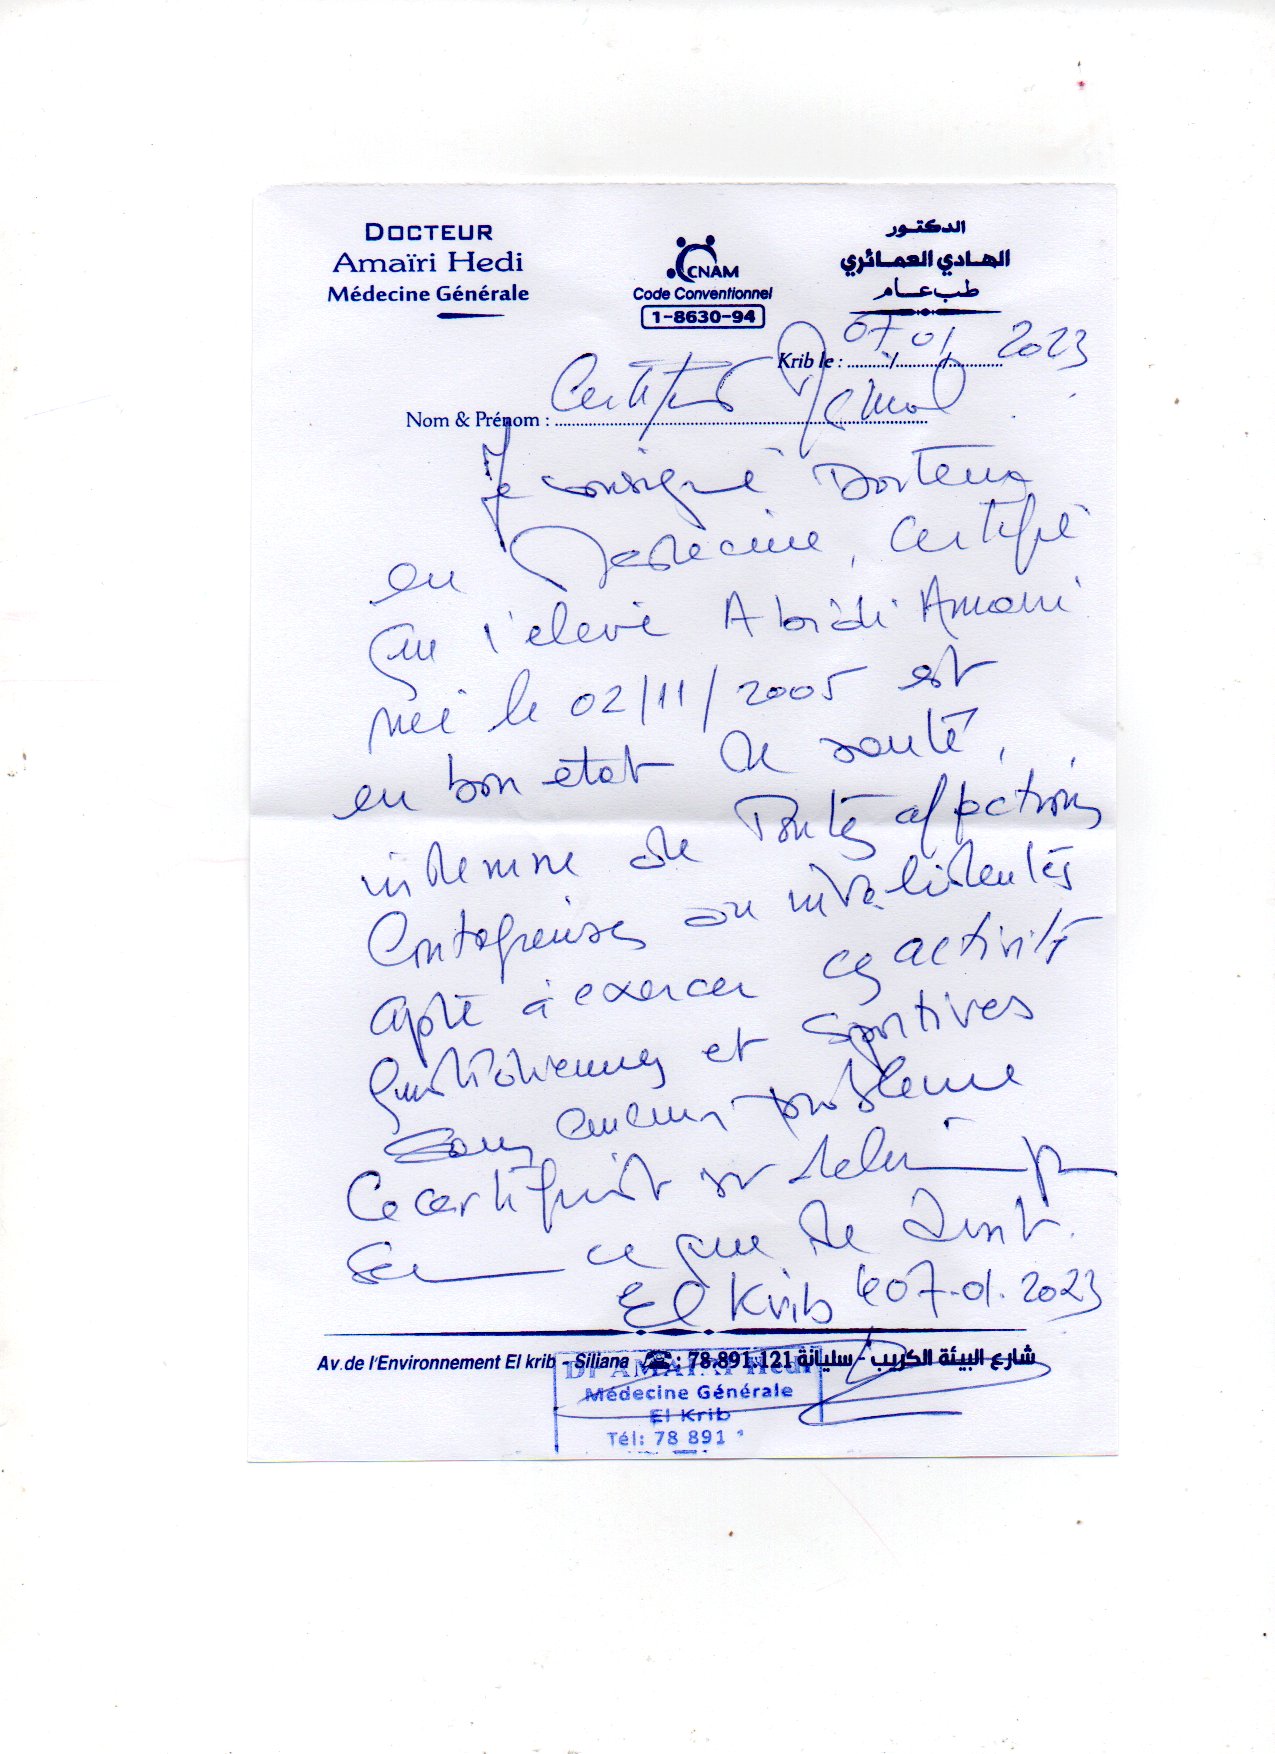 DOCTEUR
Amaïri Hedi
Médecine Générale
CNAM
Code Conventionnel
1-8630-94
الدكتور
الهادي العمائري
طب عام
Krib le : 07/01/2023
Nom & Prénom : Certificat Médical
Je soussigné Docteur
en Medecine, certifie
que l'elevé Abidi Amani
née le 02/11/2005 est
en bon état de santé,
indemne de toutes affections
contagieuses ou invalidentes
apte à exercer ces activité
quotidiennes et sportives
sans aucun probleme
Ce certificat est delivré pr
servir ce que de droit.
El Krib le 07-01-2023
Av.de l'Environnement El krib - Siliana ☎ : 78.891.121 شارع البيئة الكريب - سليانة
Dr AMAIRI Hedi
Médecine Générale
El Krib
Tél: 78 891